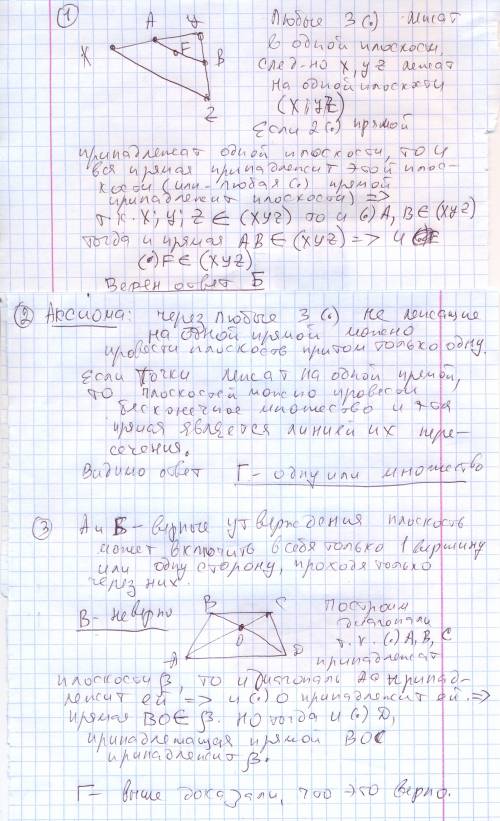 ① Любые 3 (.) лежат
A У
X F B
Z
в одной плоскости,
след-но X, У Z лежат
на одной плоскости
(X; У Z)
Если 2 (.) прямой
принадлежат одной плоскости, то и
вся прямая принадлежит этой плос-
кости (или любая (.) прямой
принадлежит плоскости) =>
т.к. X; У; Z ∈ (XУZ) то и (.) A, B ∈ (XУZ)
тогда и прямая AB ∈ (XУZ) => и
(.) F ∈ (XУZ)
Верен ответ Б
② Аксиома: через любые 3 (.) не лежащие
на одной прямой можно
провести плоскость притом только одну.
Если точки лежат на одной прямой,
то плоскостей можно провести
бесконечное множество и эта
прямая является линией их пере-
сечения.
Видимо ответ Г - одну или множество
③ А и Б - верные утверждения плоскость
может включить в себя только 1 вершину
или одну сторону, проходя только
через них.
В - неверно
B C
O
A D
Построим
диагонали
т.к. (.) A, B, C
принадлежат
плоскости β, то и диагональ AC принад-
лежит ей => и (.) O принадлежит ей =>
прямая BO ∈ β. Но тогда и (.) D,
принадлежащая прямой BO
принадлежит β.
Г - выше доказали, что это верно.